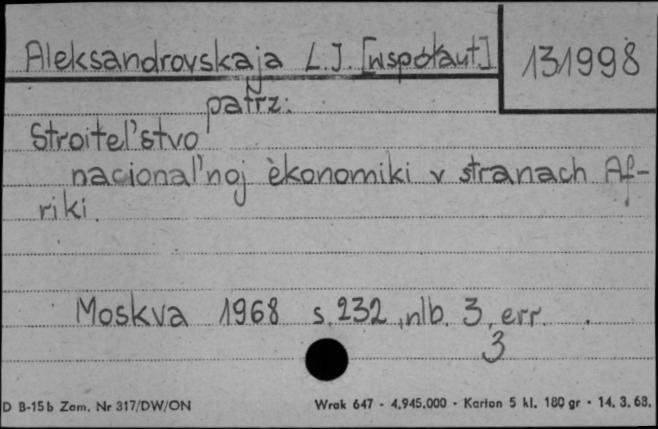 Aleksandrovskaja L.J. [współaut.]
131998
patrz:
Stroitel'stvo
nacional'noj èkonomiki v stranach Af-
riki.
Moskva 1968 s. 232, nlb. 3, err.
3
D B-15b Zam. Nr 317/DW/ON
Wrak 647 - 4.945.000 - Karton 5 kl. 180 gr - 14. 3. 68.